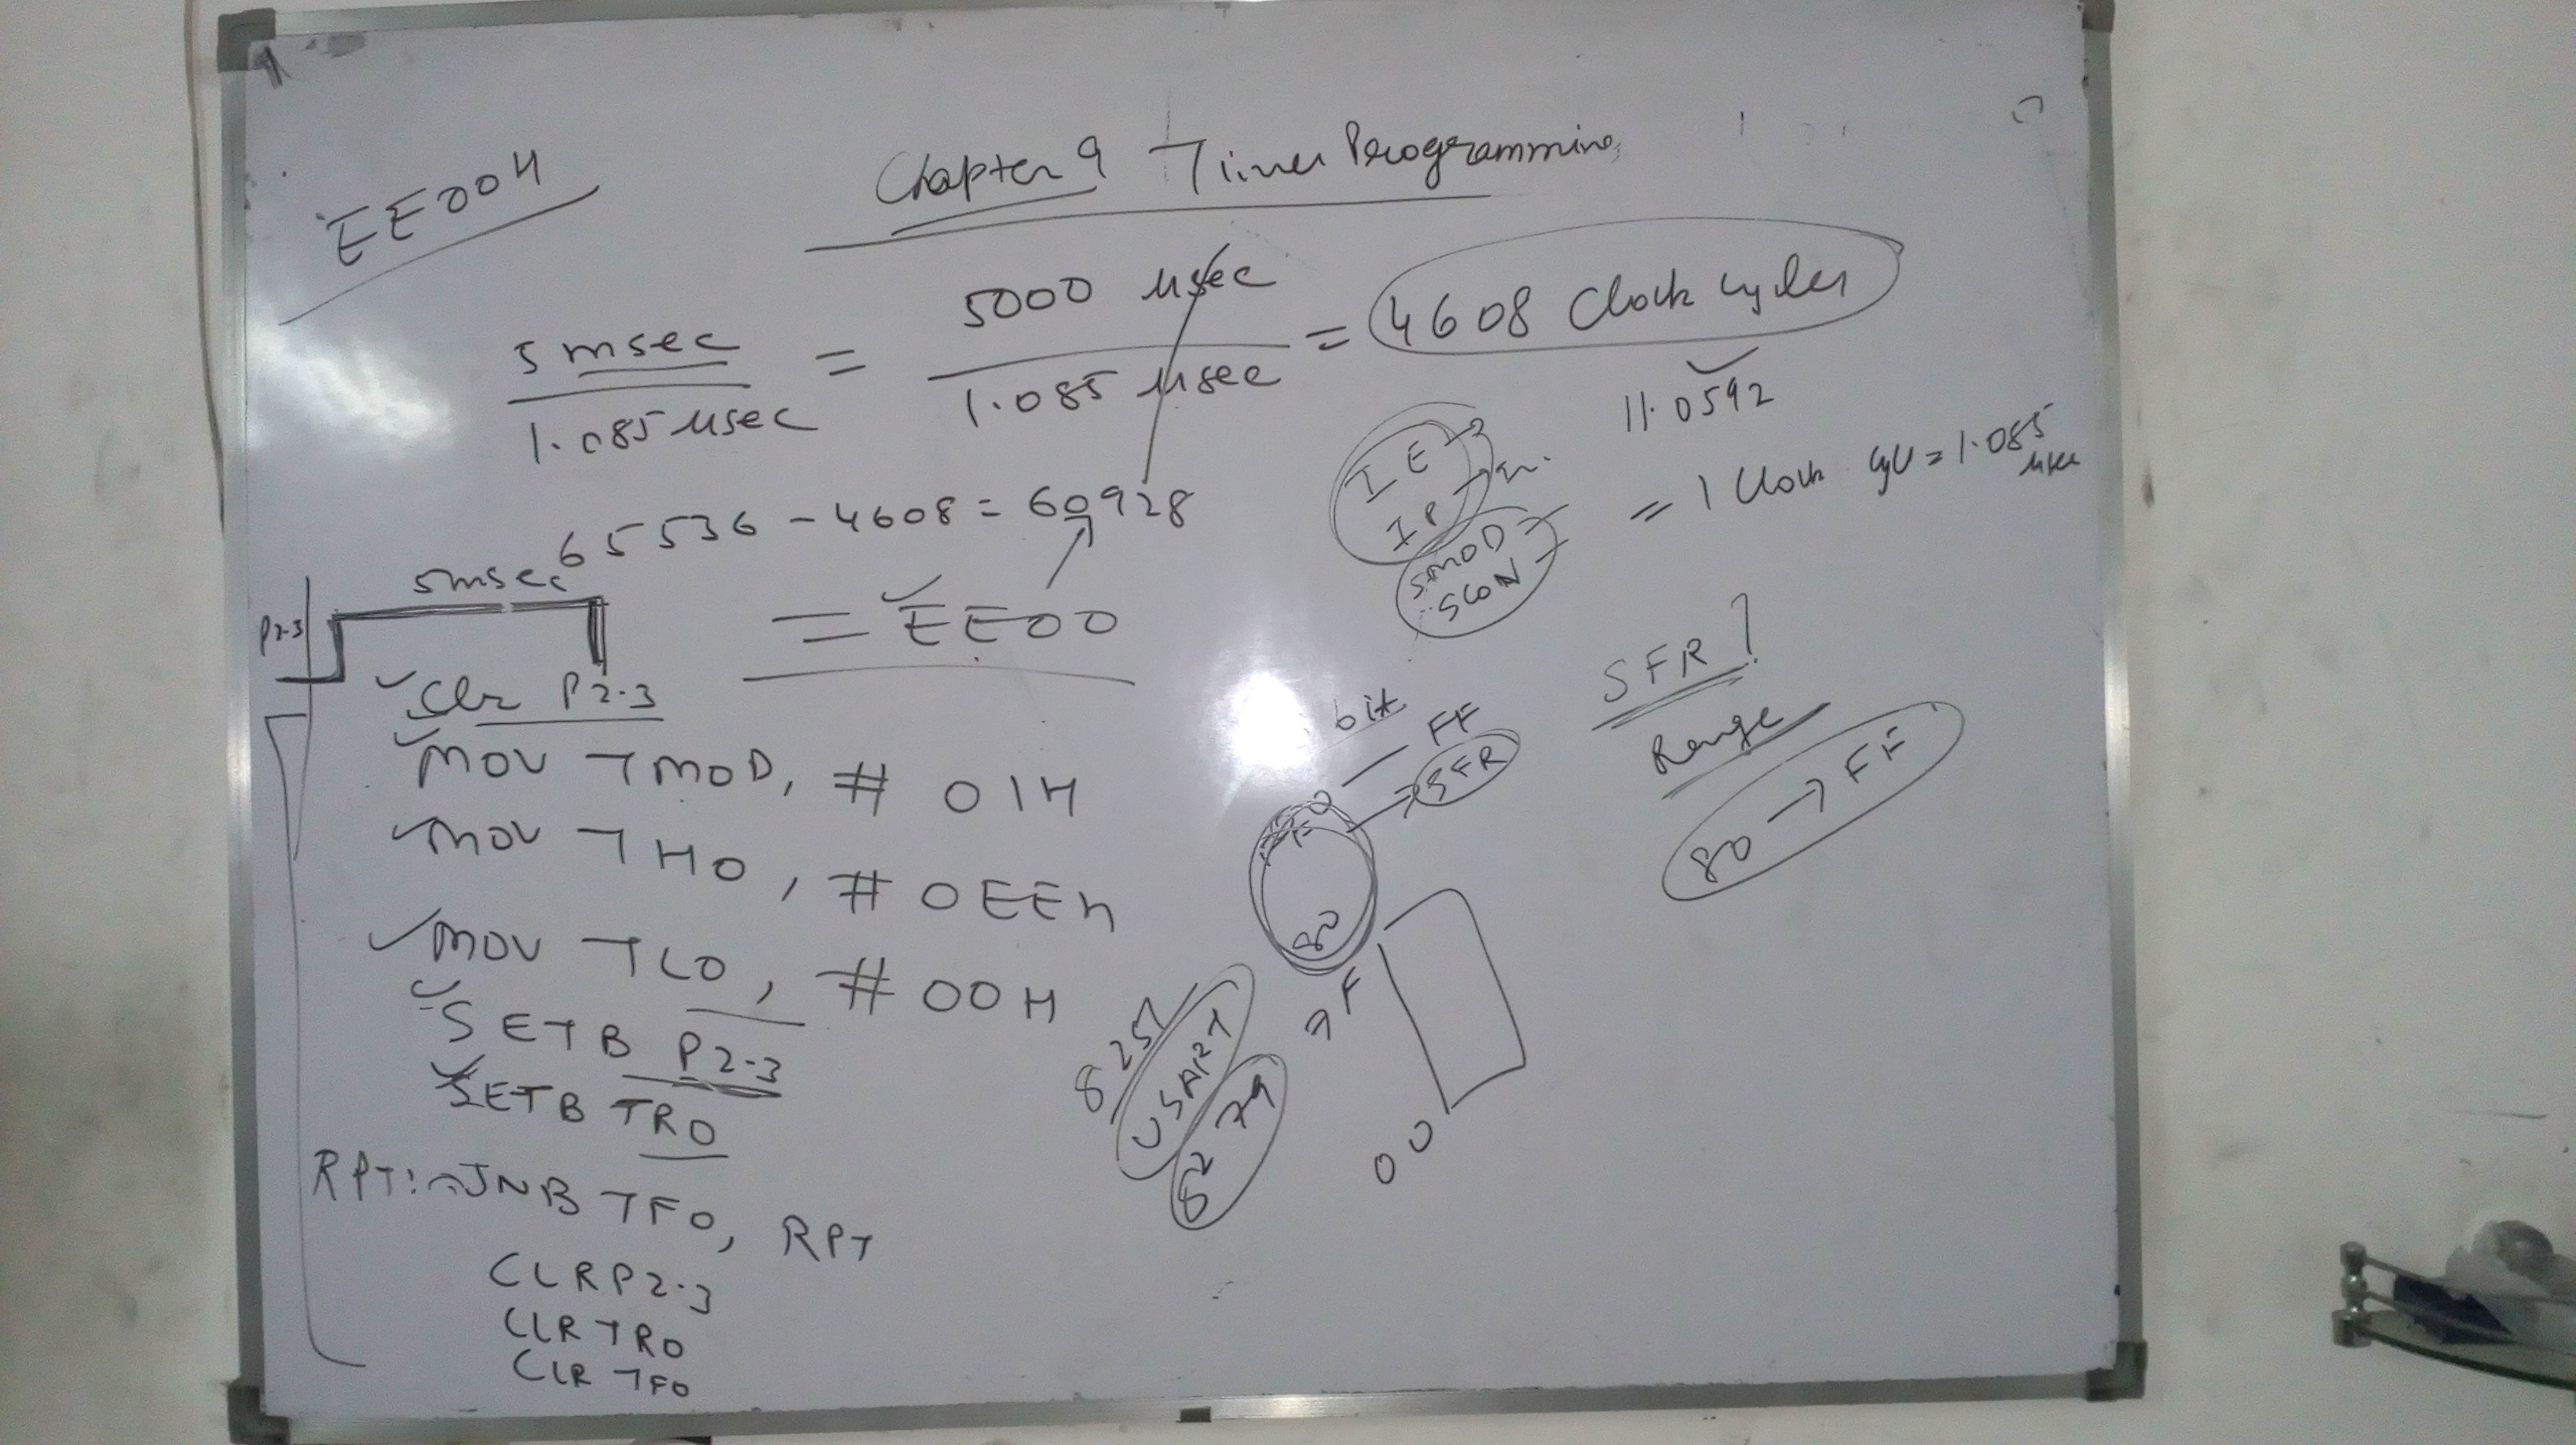 Chapter 9 Timer Programming
EE00H
5 msec / 1.085 μsec = 5000 μsec / 1.085 μsec = 4608 Clock cycles
11.0592
= 1 Clock cycl = 1.085 μsec
65536 - 4608 = 60928
= EE00
5msec
P2.3
Clr P2.3
MOV TMOD, # 01H
MOV TH0, # 0EEH
MOV TL0, # 00H
SETB P2.3
SETB TR0
RPT: JNB TF0, RPT
CLR P2.3
CLR TR0
CLR TF0
IE
IP
SMOD
SCON
SFR?
Range
80 → FF
bit
FF
SFR
80
7F
00
8251
USART
8279